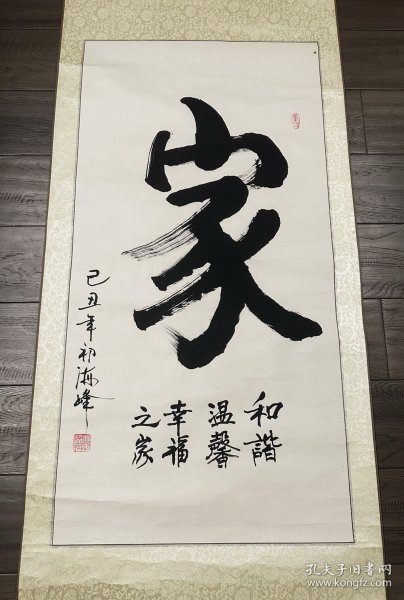 家
和諧
温馨
幸福
之家
己丑年初海峰
孔夫子旧书网
www.kongfz.com